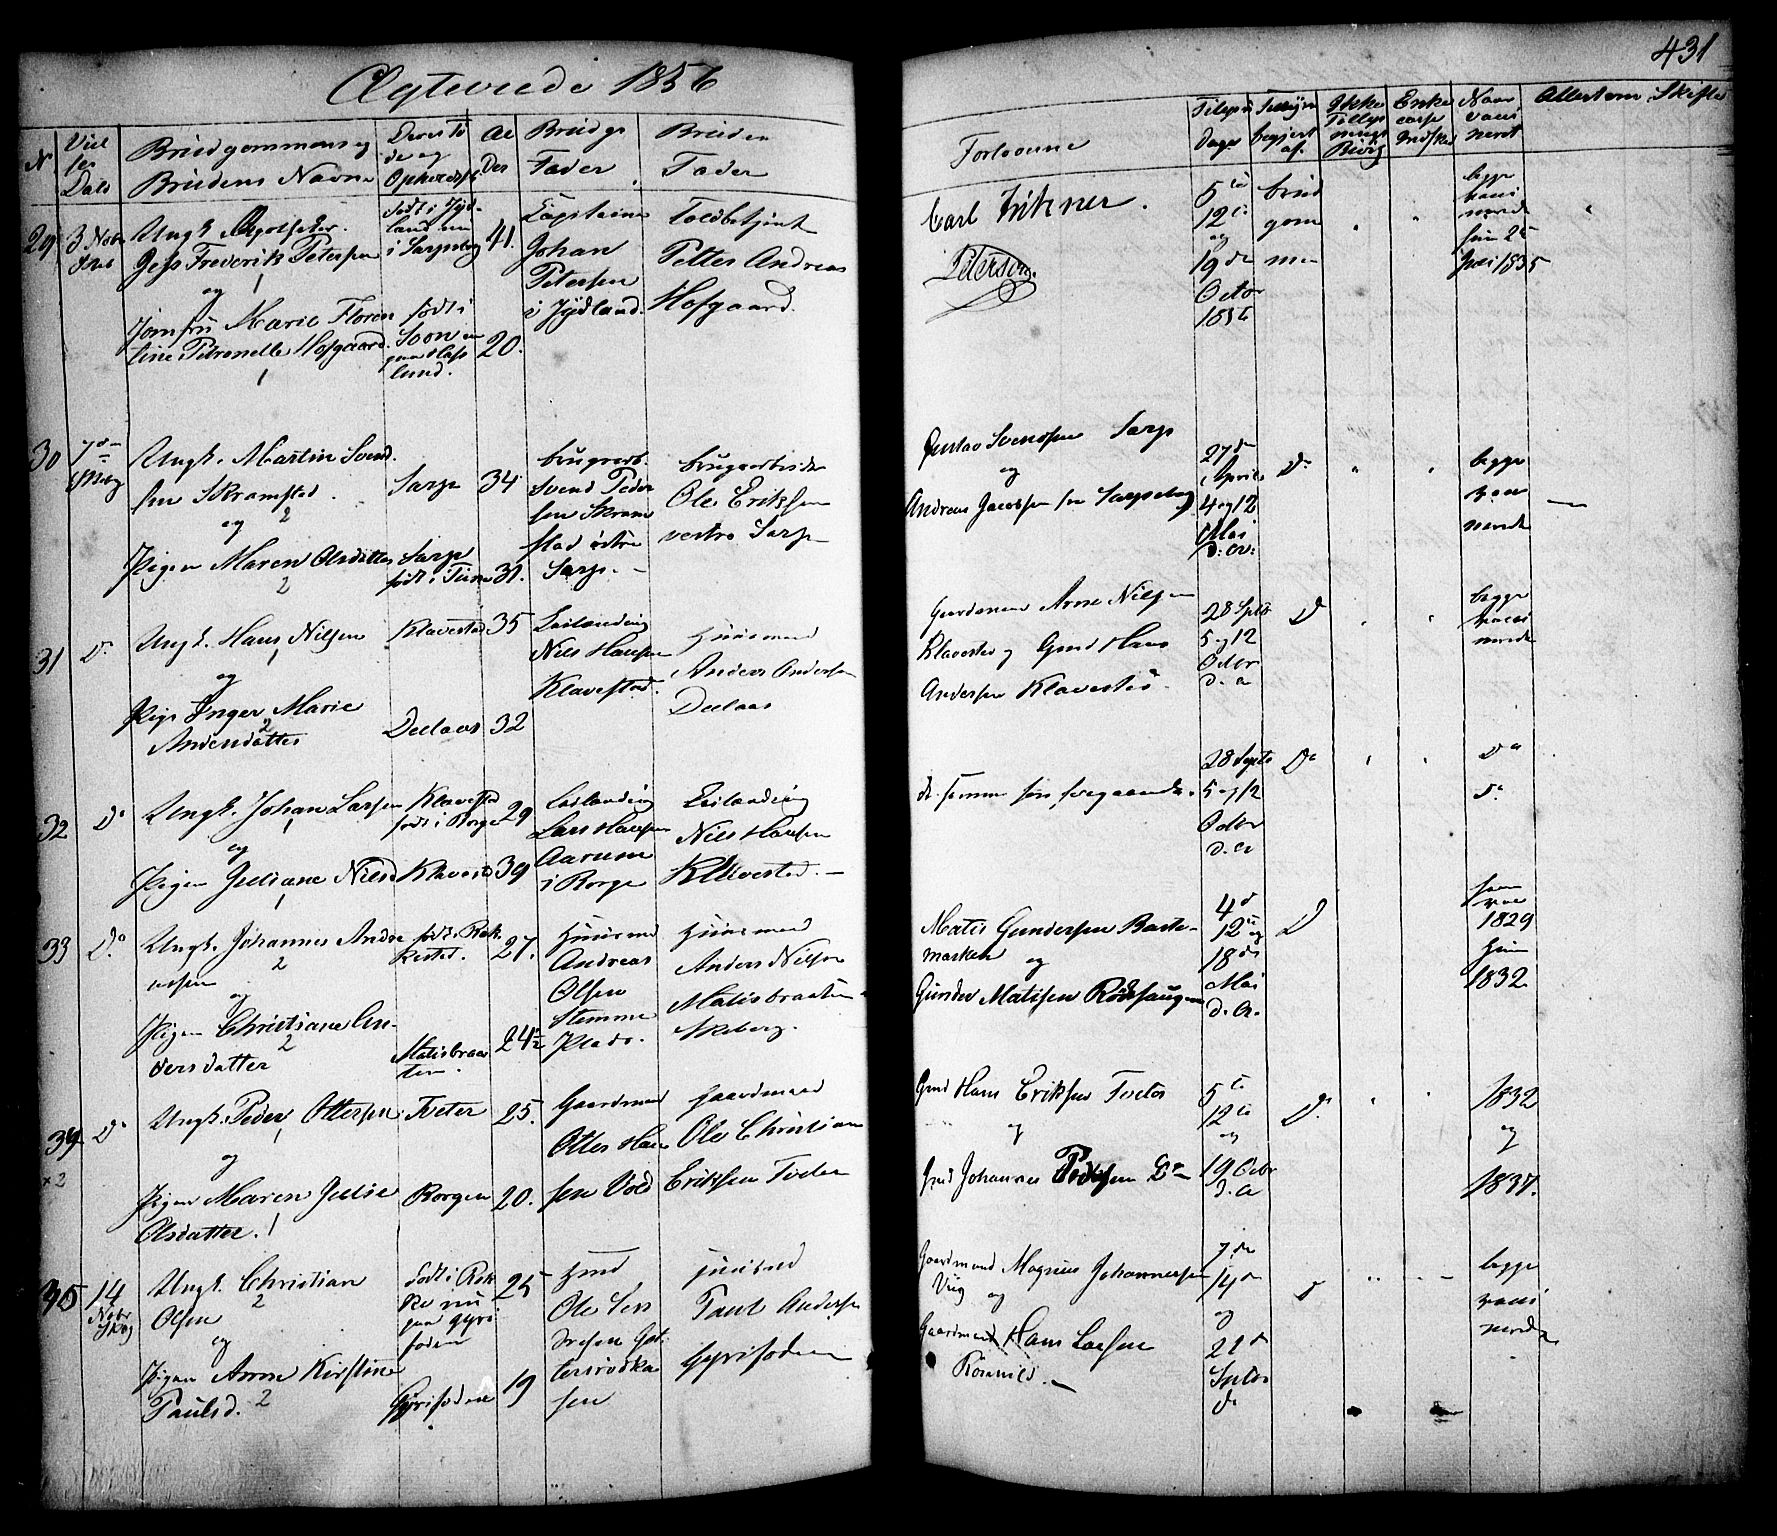 431
Ægteviede 1856
N.
Viel
ses
Dato
Brudgommens og
Brudens Navne
Deres
og
Opholdss
Al
der
Brudg
Fader
Brudens
Fader
Forlovere
Dage
begjert
af
Ikke
Enke
Naar
vaci
neret
Attest om Skifte
29
3 Nobr
Ungk
Jess Frederik Petersen
og
Jomfru Marie Floren
tine Petronelle Hofgaard.
født i Jyd
land nu
i Sarpsborg
født i
Soon
paa Hafs
lund.
41.
20.
Capitain
Johan
Petersen
i Jydland.
Toldbetjent
Petter Andreas
Hofgaard.
Carl
Petersen.
5te
12te
og
19de
Octbr
1856
brud
gom
men
begge
vaci
nerede
hun 25
Juni 1835
30
7de
Ungk. Martin Svend
sen Skramstad
og
2
Pigen Maren Olsdatter
2
Sarp
Sarp
født i Tune
34
31.
brugsarb.
Svend Peder
sen Skram
stad østre
Sarp. -
brugsarbeider
Ole Eriksen
vestre Sarp
Gustav Svendsen Sarp
og
Andreas Jacobsen for Sarpsborg
27de
April
4 og 12
Mai
d. A.
Do
begge
vac
nerede
31
Do
Ungk. Hans Nilsen
1
og
Pige Inger Marie
2
Andersdatter
Klavestad
Deelaas
35
32
Nils Hansen
Klavestad.
Huusmand
Anders Andersen
Deelaas
Gaardmand Arne Nilsen
Klavestad og Gmd Hans
Andersen Klavestad.
28 Septb
5 og 12
Octbr
d. a
Do
begge
vacci
nerede
32
Do
Ungk. Johan Larsen
1
og
Pigen Juliane Nilsd
1
Klavestad
født i Borge
Klavestd
29
39
Lars Hansen
Aarum
i Borge
Nils Hansen
Klavestad. -
de samme som foregaaende.
28 Septb
5 og 12
Octbr
d. a
Do
Do
Do
33
Do
Ungk. Johannes Andre
2
assen
og
Pigen Christiane An-
2
dersdatter
født i Rak
kestad.
Matisbraa
ten.
27.
24½
Huusmd
Andreas
Olsen
Stemme
Plads.
Huusmand
Anders Nilsen
Matisbraaten
Skeberg.
Matis Gundersen Baste-
marken og
Gunder Matisen Rødshaugen
4de
12te og
18de
Mai
d. A.
Do
han
vac
1829
hun
1832
34
Do
x 2
Ungk. Peder Ottersen
1
og
Pigen Maren Julie
Olsdatter. 1
Tveter
Borgen
25.
20.
Gaardmand
Otter Han
sen Vold
Gaardmand
Ole Christian
Eriksen Tveter
Gmd Hans Eriksen Tveter
og
Gmd Johannes Do
5te
12te
og
19 Octbr
d. a
Do
1832
og
1837.
35
14
Nobr
Ungk. Christian
2
Olsen
og
Pigen Anne Kirstine
Paulsd. 2
født i Rak
ke nu
paa Gyri
soden
Gyrisoden
25
19
Hmd
Ole
Huusmd
Paul Andersen
Gyrisoden
Gaardmand Magnus Johannesen
Viig og
Gaardmand Hans Larsen
7de
14de
og
21de
Septbr
Do
begge
vaci
nerede